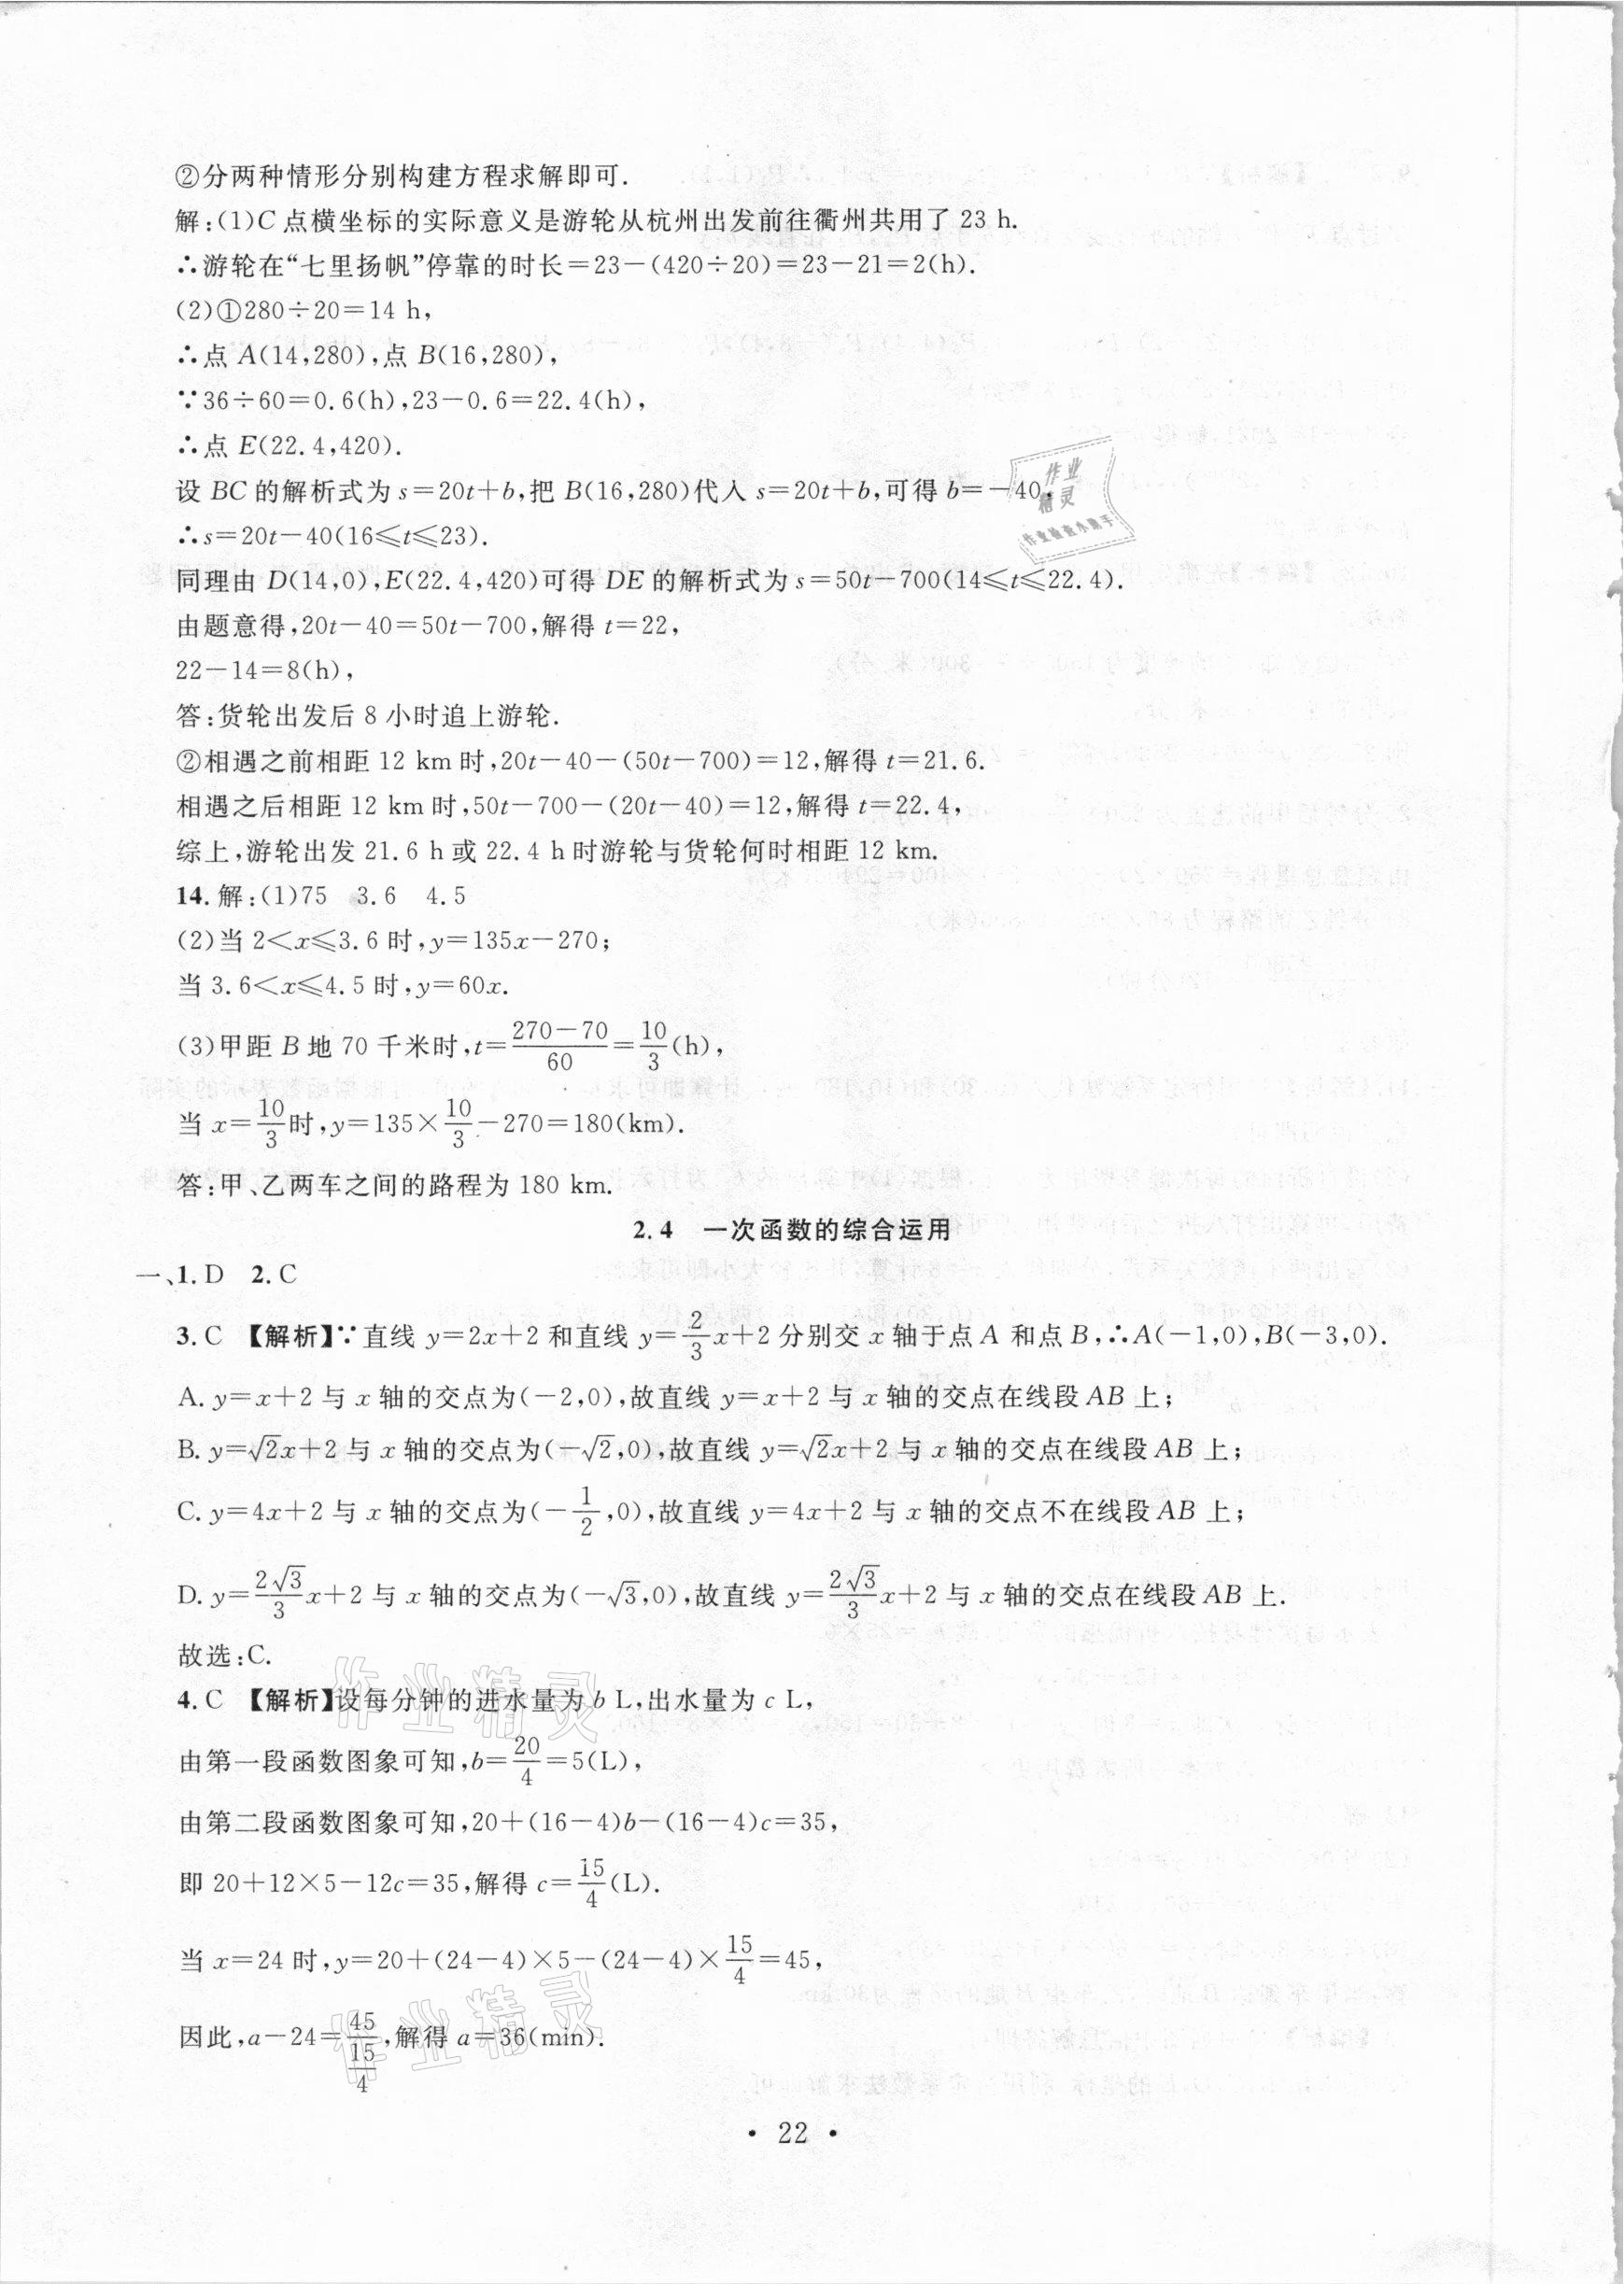 ②分两种情形分别构建方程求解即可.
解:(1)C 点横坐标的实际意义是游轮从杭州出发前往衢州共用了 23 h.
∴游轮在“七里扬帆”停靠的时长=23-(420÷20)=23-21=2(h).
(2)①280÷20=14 h,
∴点 A(14,280),点 B(16,280),
∵36÷60=0.6(h),23-0.6=22.4(h),
∴点 E(22.4,420).
设 BC 的解析式为 s=20t+b,把 B(16,280)代入 s=20t+b,可得 b=-40,
∴s=20t-40(16≤t≤23).
同理由 D(14,0),E(22.4,420)可得 DE 的解析式为 s=50t-700(14≤t≤22.4).
由题意得,20t-40=50t-700,解得 t=22,
22-14=8(h),
答:货轮出发后 8 小时追上游轮.
②相遇之前相距 12 km 时,20t-40-(50t-700)=12,解得 t=21.6.
相遇之后相距 12 km 时,50t-700-(20t-40)=12,解得 t=22.4,
综上,游轮出发 21.6 h 或 22.4 h 时游轮与货轮何时相距 12 km.
14.解:(1)75 3.6 4.5
(2)当 2<x≤3.6 时,y=135x-270;
当 3.6<x≤4.5 时,y=60x.
(3)甲距 B 地 70 千米时,t=\frac{270-70}{60}=\frac{10}{3}(h),
当 x=\frac{10}{3}时,y=135×\frac{10}{3}-270=180(km).
答:甲、乙两车之间的路程为 180 km.
2.4 一次函数的综合运用
一、1.D 2.C
3.C 【解析】∵直线 y=2x+2 和直线 y=\frac{2}{3}x+2 分别交 x 轴于点 A 和点 B,∴A(-1,0),B(-3,0).
A. y=x+2 与 x 轴的交点为(-2,0),故直线 y=x+2 与 x 轴的交点在线段 AB 上;
B. y=√2x+2 与 x 轴的交点为(-√2,0),故直线 y=√2x+2 与 x 轴的交点在线段 AB 上;
C. y=4x+2 与 x 轴的交点为(-\frac{1}{2},0),故直线 y=4x+2 与 x 轴的交点不在线段 AB 上;
D. y=\frac{2√3}{3}x+2 与 x 轴的交点为(-√3,0),故直线 y=\frac{2√3}{3}x+2 与 x 轴的交点在线段 AB 上.
故选:C.
4.C 【解析】设每分钟的进水量为 b L,出水量为 c L,
由第一段函数图象可知,b=\frac{20}{4}=5(L),
由第二段函数图象可知,20+(16-4)b-(16-4)c=35,
即 20+12×5-12c=35,解得 c=\frac{15}{4}(L).
当 x=24 时,y=20+(24-4)×5-(24-4)×\frac{15}{4}=45,
因此,a-24=\frac{45}{\frac{15}{4}},解得 a=36(min).
• 22 •
作业
精灵
作业检查小助手
作业精灵
作业精灵